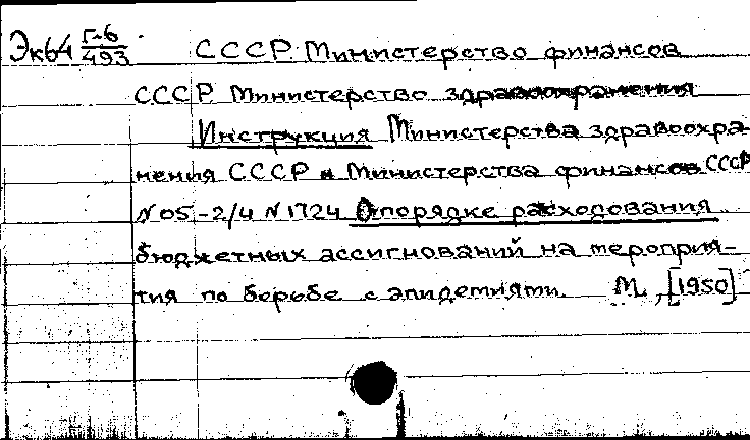 Эк64 Г-6/493 СССР. Министерство финансов
СССР Министерство здравоохранения
Инструкция Министерства здравоохра-
нения СССР и Министерства финансов СССР
N 05-2/4 N 1724 О порядке расходования
бюджетных ассигнований на мероприя-
тия по борьбе с эпидемиями. М., [1950]